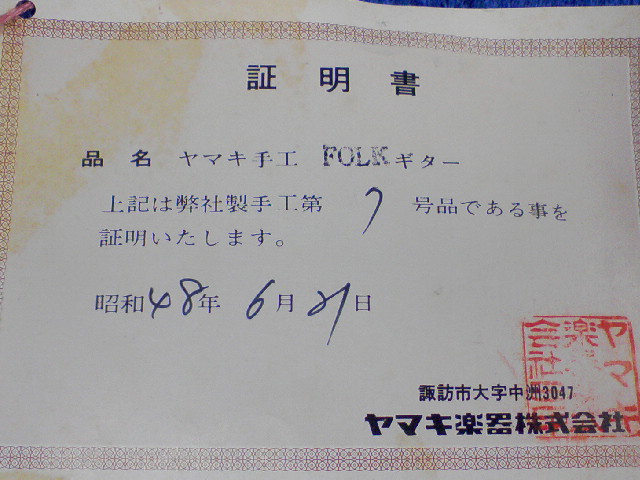 証明書
品名 ヤマキ手工 FOLK ギター
上記は弊社製手工第 7 号品である事を
証明いたします。
昭和48年 6月 21日
諏訪市大字中洲3047
ヤマキ楽器株式会社